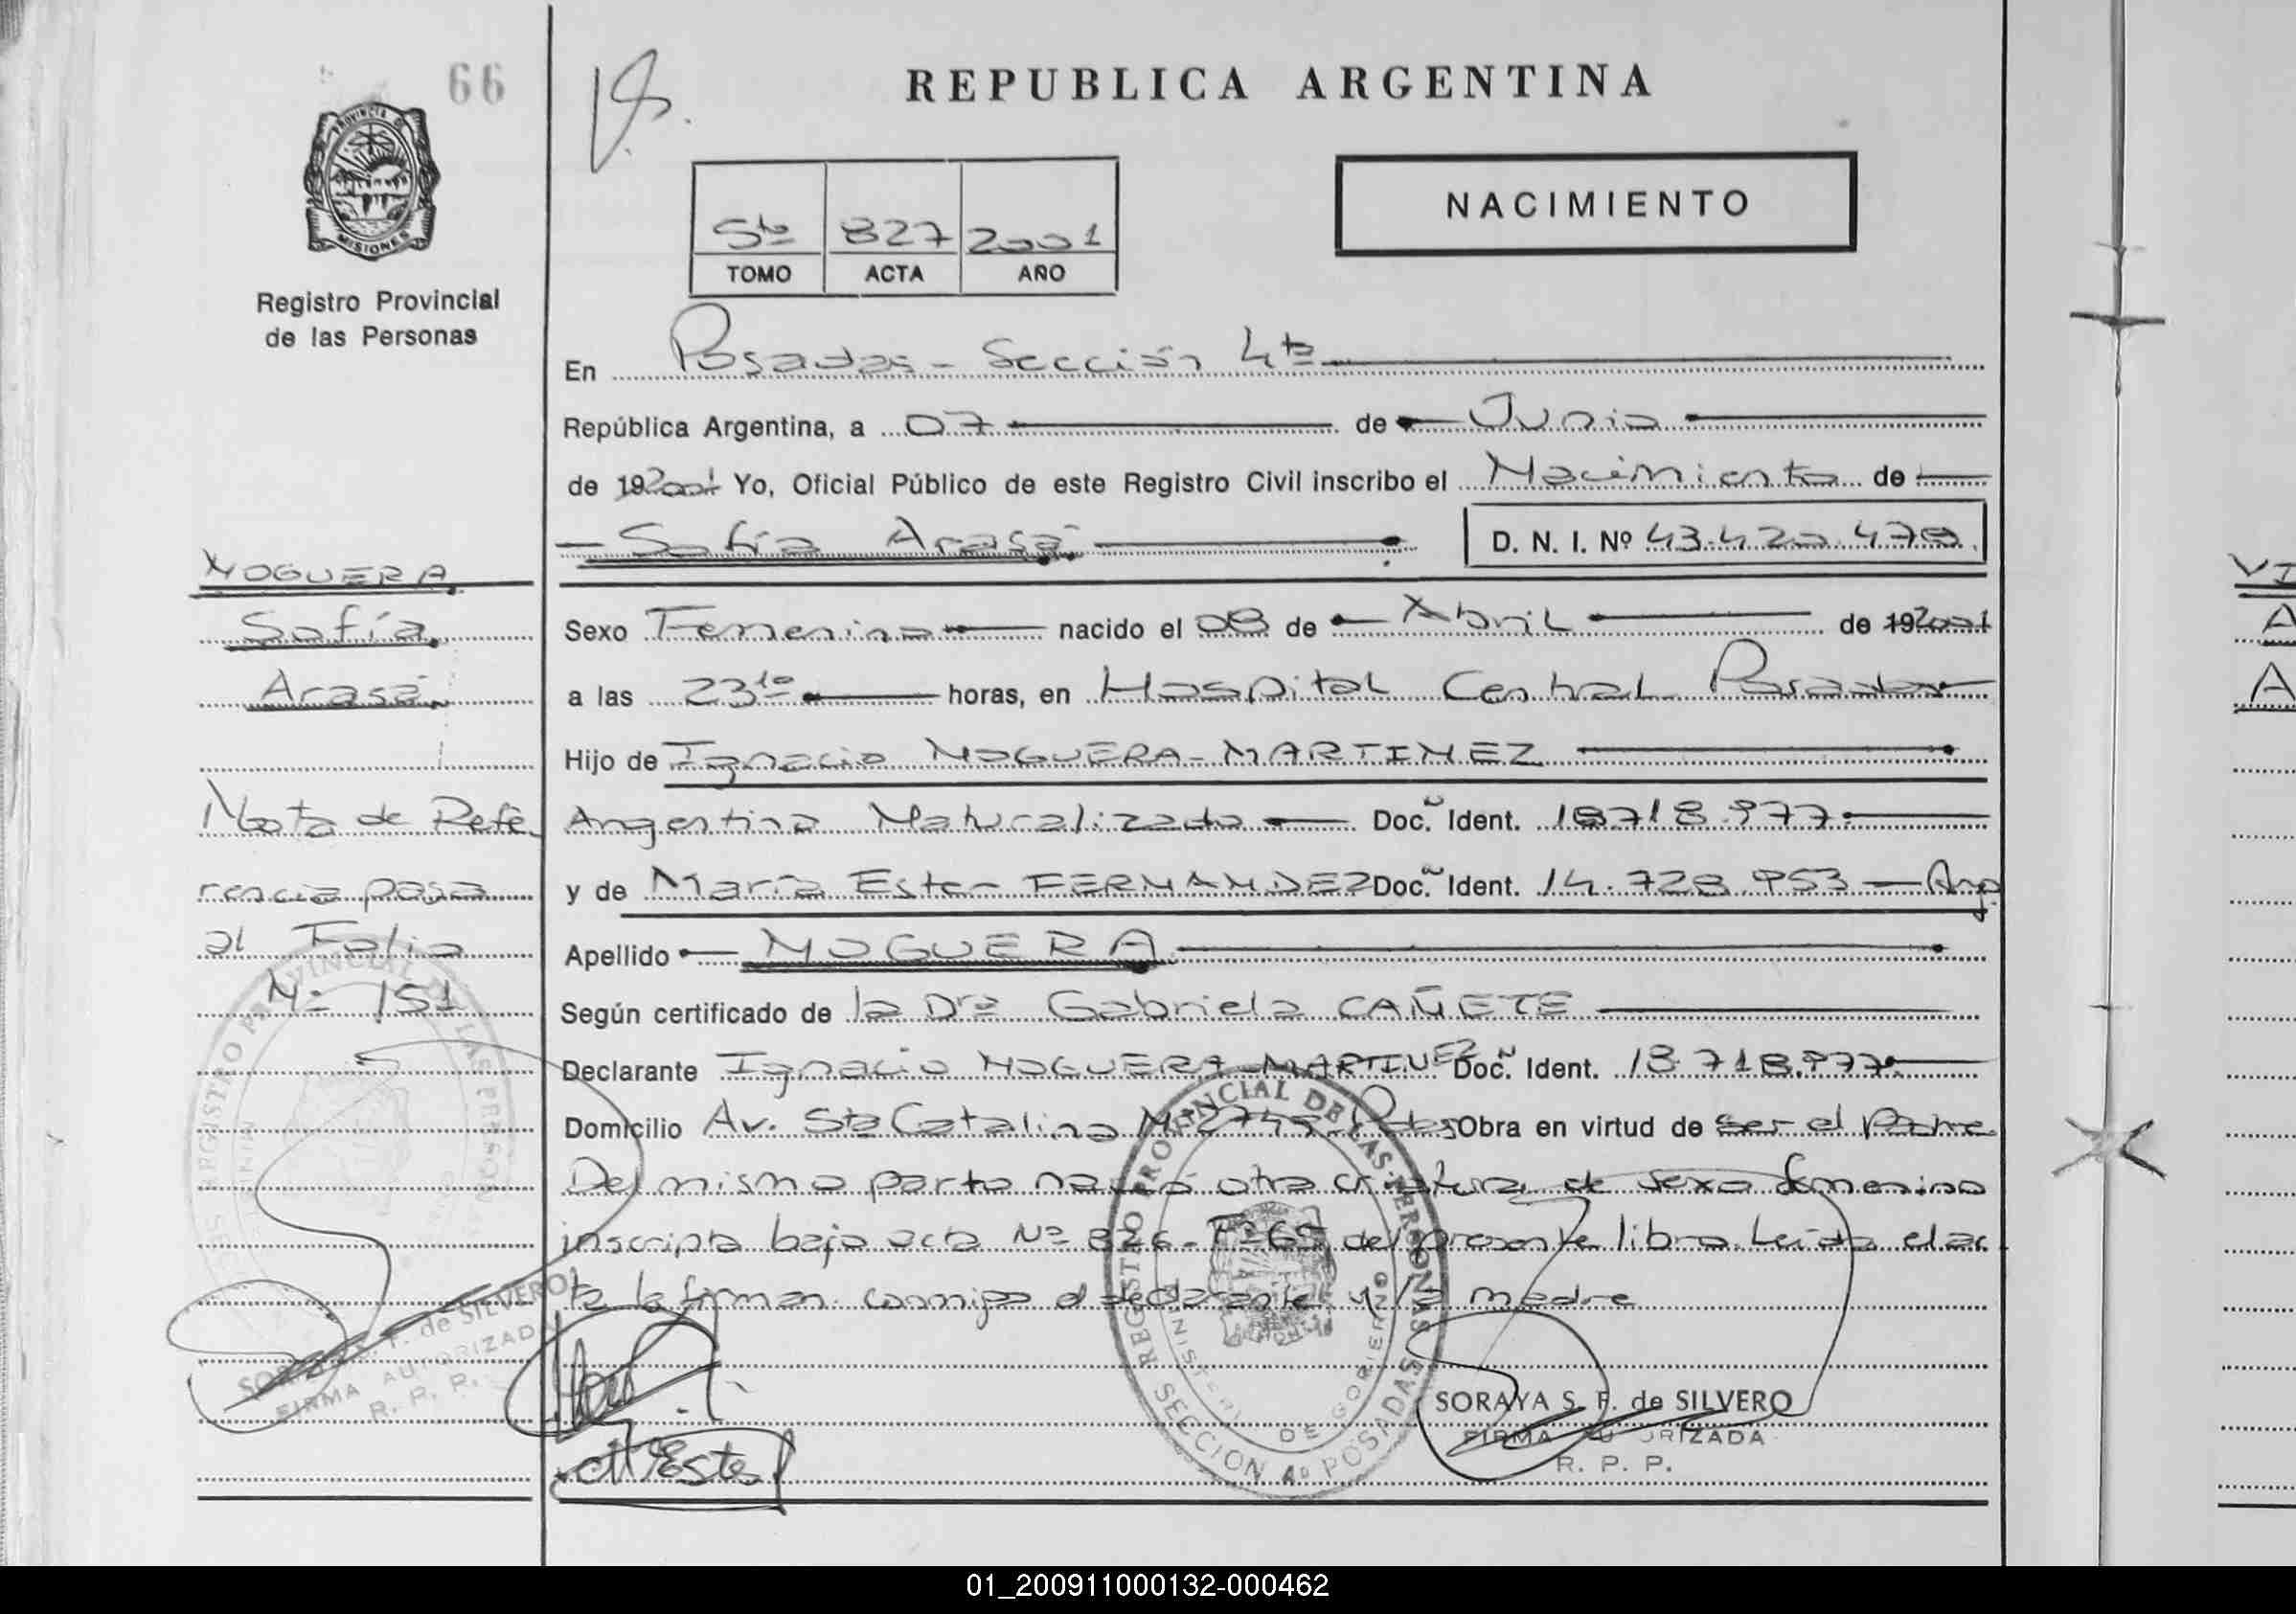 66
REPUBLICA ARGENTINA
PROVINCIA DE MISIONES
Registro Provincial
de las Personas
NACIMIENTO
5to 827 2001
TOMO ACTA AÑO
En Posadas - Sección 4ta
República Argentina, a 07 de Junio
de 192001 Yo, Oficial Público de este Registro Civil inscribo el Nacimiento de
Sofía Arasá D. N. I. Nº 43.420.478
NOGUERA
Sofía
Arasá
Sexo Femenino nacido el 08 de Abril de 192001
a las 23 10 horas, en Hospital Central Posadas
Hijo de Ignacio NOGUERA - MARTINEZ
Argentino Naturalizado Doc. Ident. 18.718.977
y de María Ester FERNANDEZ Doc. Ident. 14.728.953 - Arg.
Apellido NOGUERA
Según certificado de la Dra Gabriela CAÑETE
Declarante Ignacio NOGUERA MARTINEZ Doc. Ident. 18.718.977
Domicilio Av. Sta Catalina Nº 2745 - Pdas Obra en virtud de ser el Padre
Del mismo parto nació otra criatura de sexo femenino
inscripta bajo acta Nº 826 - Fº 65 del presente libro. Leída el ac
ta la firman conmigo el declarante y la madre
Nota de Refe
rencia pasa
al Folio
Nº 151
REGISTRO PROVINCIAL DE LAS PERSONAS
SECCION 4º POSADAS
MINISTERIO DE GOBIERNO
SORAYA S. F. de SILVERO
FIRMA AUTORIZADA
R. P. P.
SORAYA S. F. de SILVERO
FIRMA AUTORIZADA
R. P. P.
M Ester
VI
A
A
01_200911000132-000462